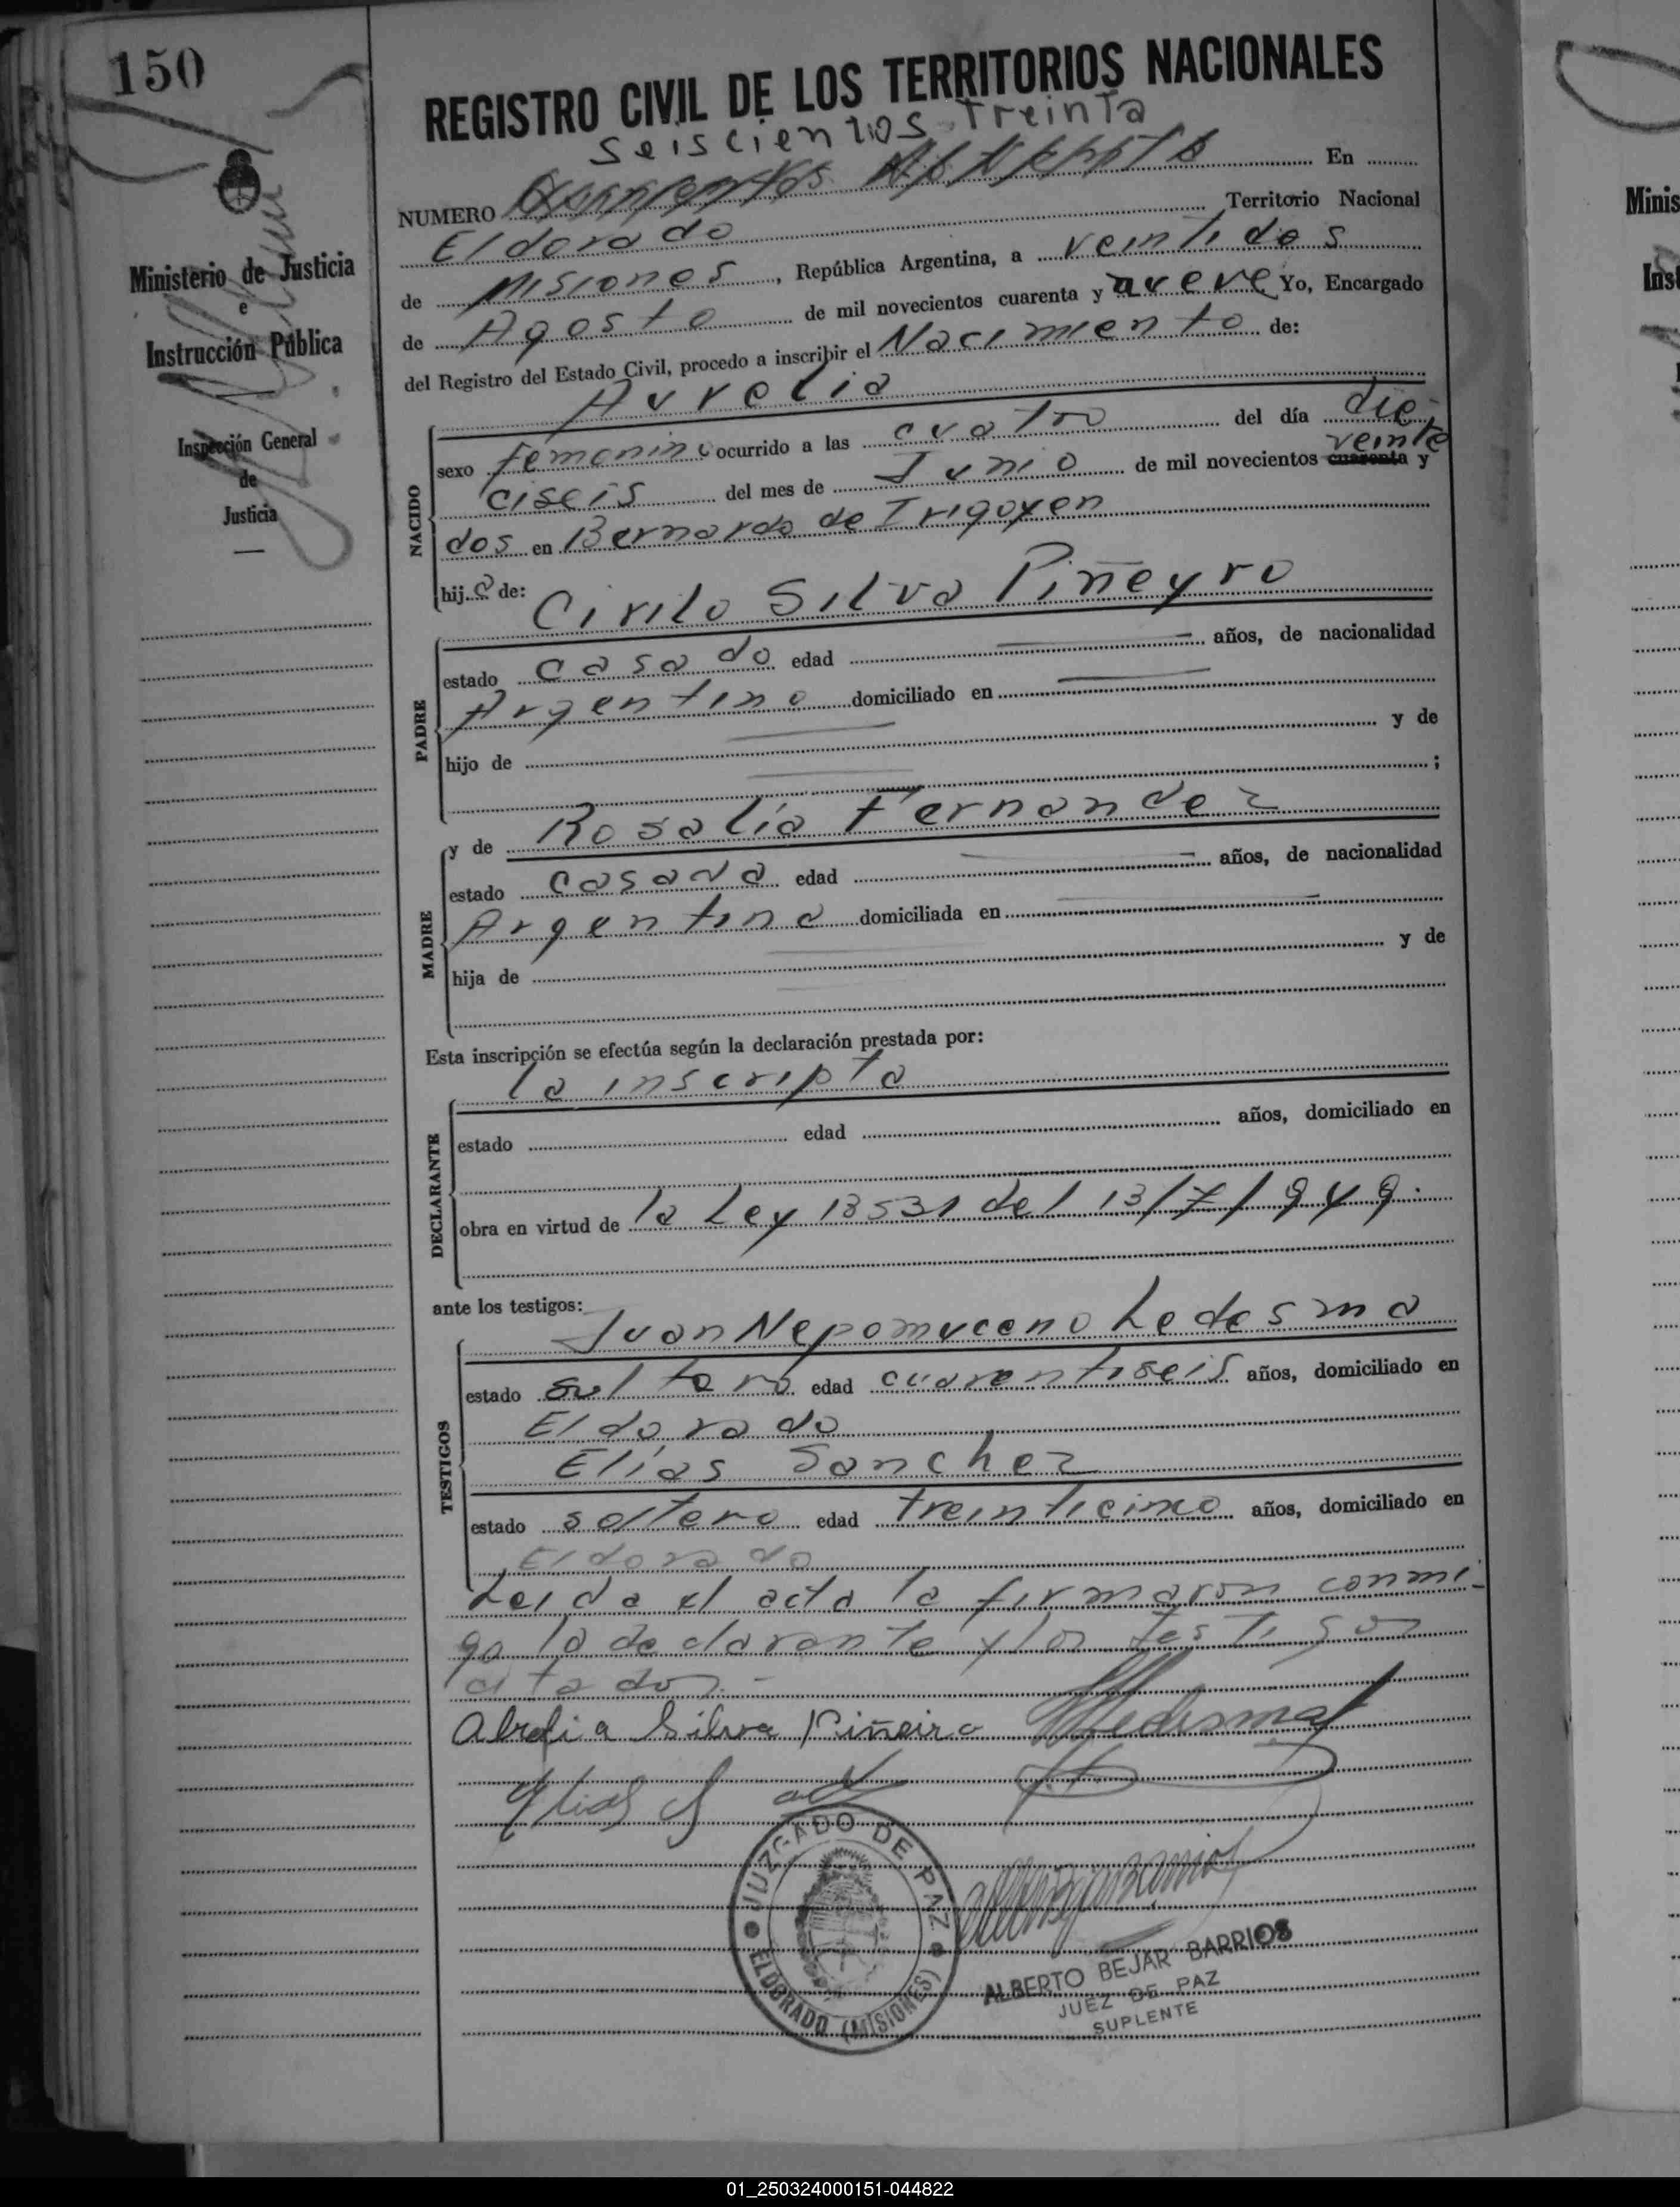 150
REGISTRO CIVIL DE LOS TERRITORIOS NACIONALES
Seiscientos Treinta
NUMERO En
Eldorado Territorio Nacional
de Misiones, República Argentina, a veintidos
de Agosto de mil novecientos cuarenta y nueve Yo, Encargado
del Registro del Estado Civil, procedo a inscribir el Nacimiento de:
Ministerio de Justicia
e
Instrucción Pública
Inspección General
de
Justicia
Aurelia
NACIDO
sexo femenino ocurrido a las cuatro del día die
ciseis del mes de Junio de mil novecientos cuarenta y veinte
dos en Bernardo de Irigoyen
hija de: Cirilo Silva Piñeyro
PADRE
estado casado edad años, de nacionalidad
Argentino domiciliado en
hijo de y de
;
MADRE
y de Rosalía Fernandez
estado casada edad años, de nacionalidad
Argentina domiciliada en
hija de y de
Esta inscripción se efectúa según la declaración prestada por:
la inscripta
DECLARANTE
estado edad años, domiciliado en
obra en virtud de la Ley 13531 del 13/7/949.
ante los testigos:
Juan Nepomuceno Ledesma
TESTIGOS
estado soltero edad cuarentiseis años, domiciliado en
Eldorado
Elías Sanchez
estado soltero edad treinticinco años, domiciliado en
Eldorado
Leida el acta la firmaron conmi-
go la declarante y los testigos
citados.-
Abrelia Silva Piñeiro Ledesma
Elias S
JUZGADO DE PAZ
ELDORADO (MISIONES)
ALBERTO BEJAR BARRIOS
JUEZ DE PAZ
SUPLENTE
Minis
Inst
01_250324000151-044822